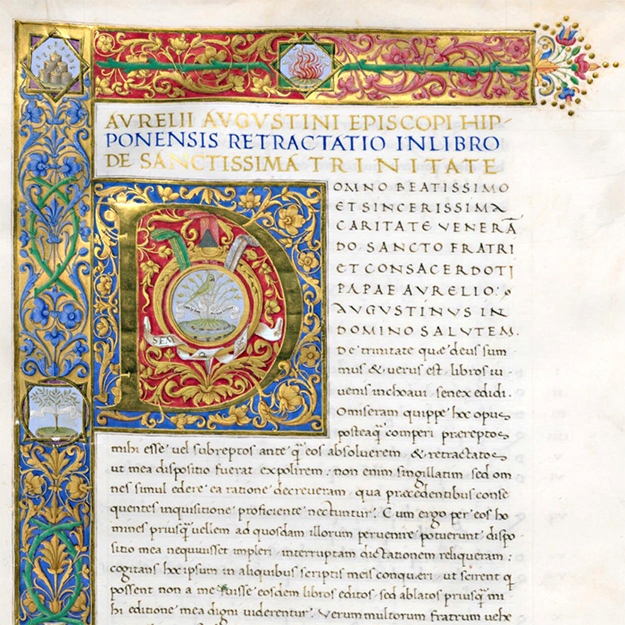 AVRELII AVGVSTINI EPISCOPI HIP-
PONENSIS RETRACTATIO IN LIBRO
DE SANCTISSIMA TRINITATE
DOMNO BEATISSIMO
ET SINCERISSIMA
CARITATE VENERÃ
DO SANCTO FRATRI
ET CONSACERDOTI
PAPAE AVRELIO:
AVGVSTINVS IN
DOMINO SALVTEM.
De trinitate quae deus sum
mus & verus est libros iu
venis inchoavi senex edidi.
Omiseram quippe hoc opus
posteaq̃ comperi praereptos
SEM
mihi esse vel subreptos ante q̃ eos absoluerem & retractatos
ut mea dispositio fuerat expolirem: non enim singillatim sed om
nes simul edere ea ratione decreveram quia praecedentibus conse
quentes inquisitione proficiente nectuntur. Cum ergo per eos ho
mines priusq̃ vellem ad quosdam illorum pervenire potuerunt dispo
sitio mea nequivisset impleri interruptam dictationem reliqueram:
cogitans hoc ipsum in aliquibus scriptis meis conqueri ut scirent q̃
possent non a me fuisse eosdem libros editos sed ablatos priusq̃ mi
hi editione mea digni viderentur. Verum multorum fratrum vehe